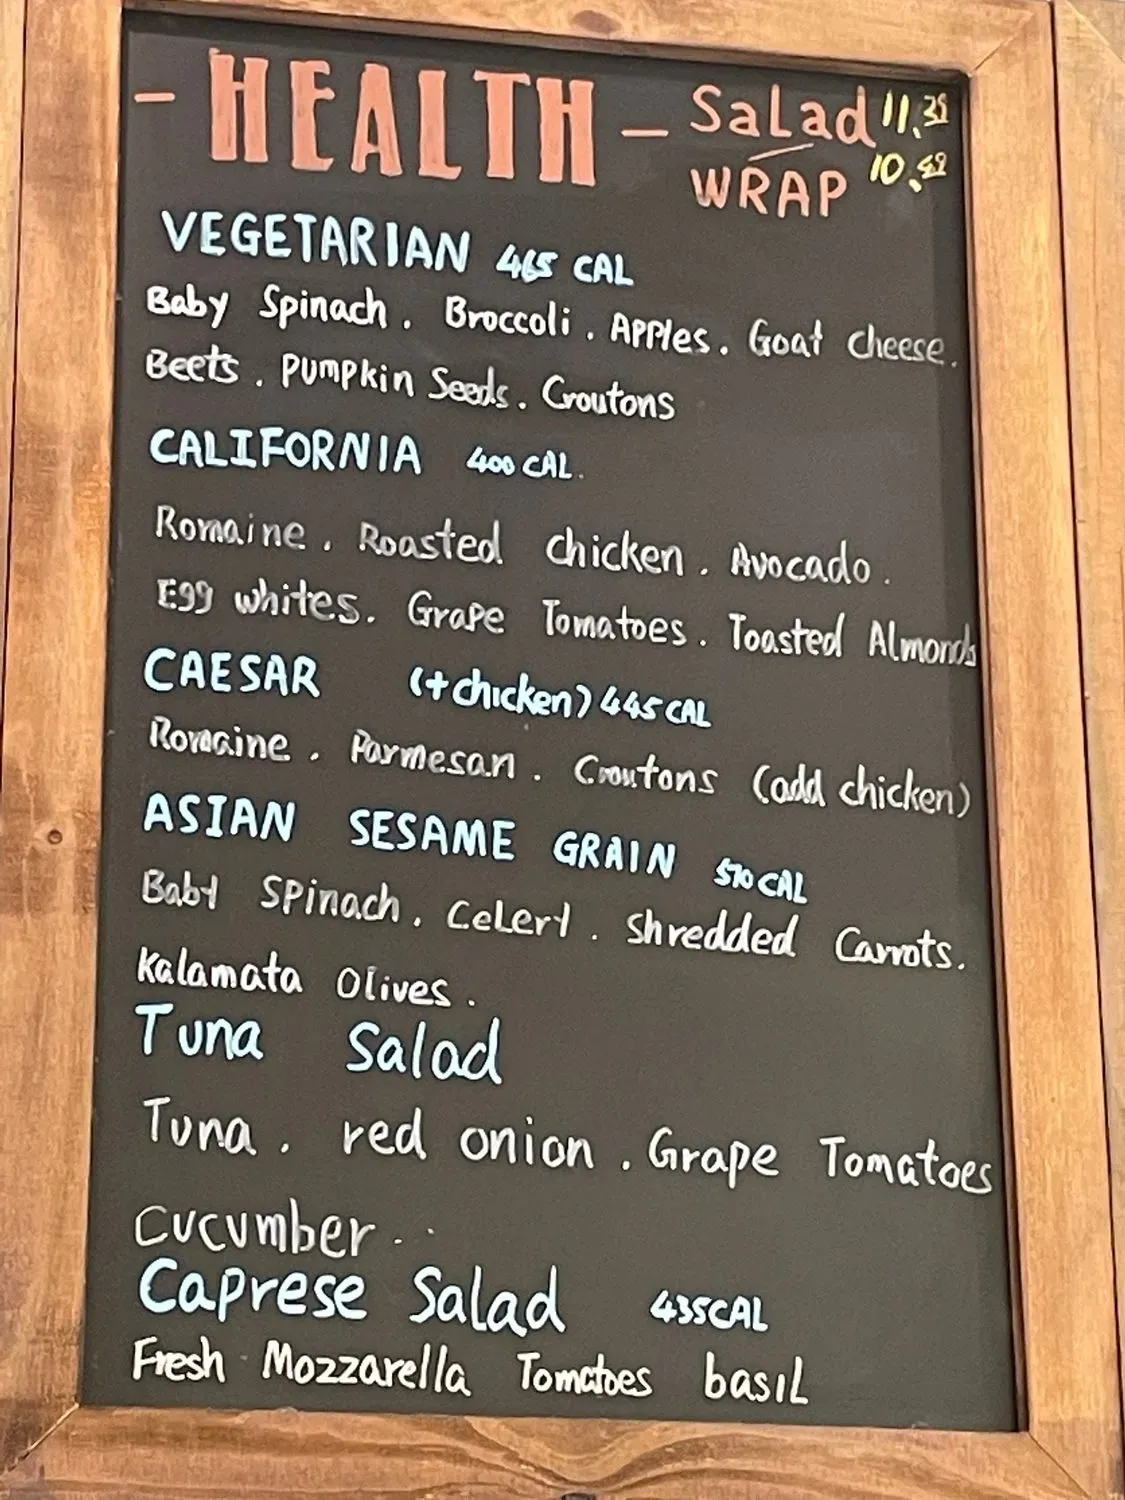 - HEALTH - Salad 11.39
WRAP 10.49
VEGETARIAN 465 CAL
Baby Spinach. Broccoli. Apples. Goat cheese.
Beets. Pumpkin Seeds. Croutons
CALIFORNIA 400 CAL.
Romaine. Roasted chicken. Avocado.
Egg whites. Grape Tomatoes. Toasted Almonds
CAESAR (+chicken) 445 CAL
Romaine. Parmesan. Croutons (add chicken)
ASIAN SESAME GRAIN 510 CAL
Baby Spinach. Celery. Shredded Carrots.
Kalamata Olives.
Tuna Salad
Tuna. red onion. Grape Tomatoes
Cucumber..
Caprese Salad 435CAL
Fresh Mozzarella Tomatoes basil